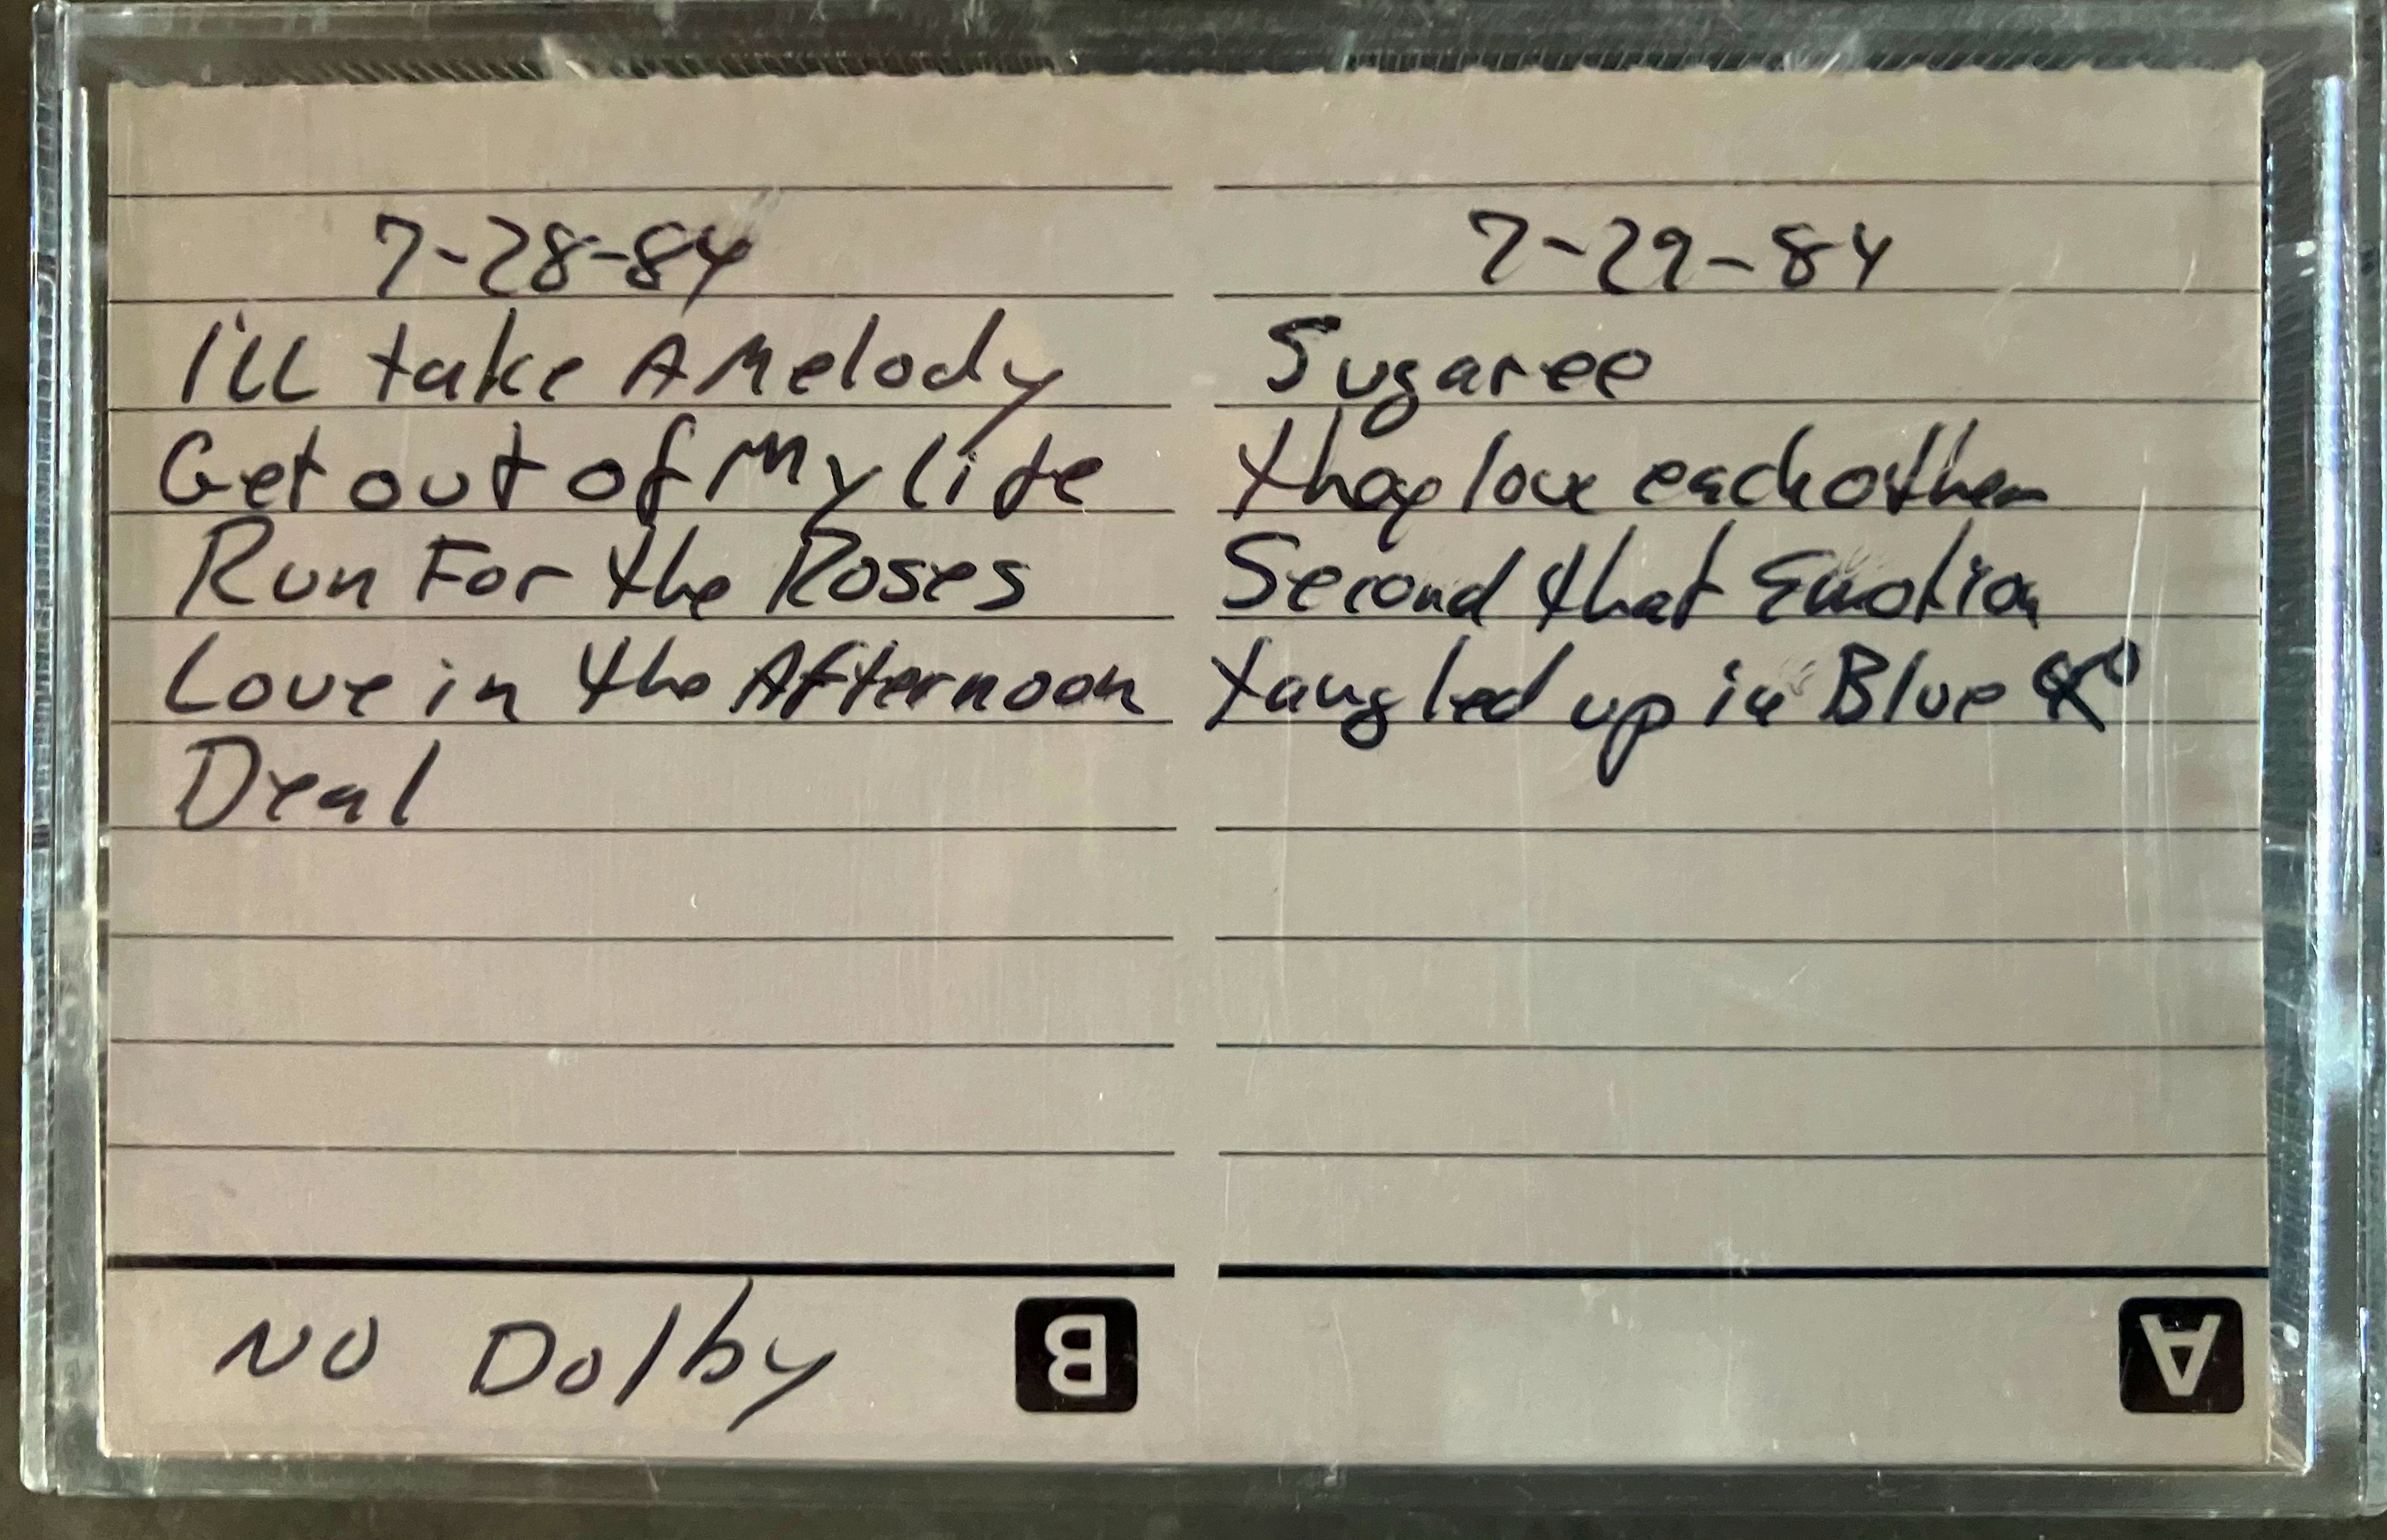 7-28-84
I'll take A Melody
Get out of My life
Run For the Roses
Love in the Afternoon
Deal
NO Dolby
B
7-29-84
Sugaree
they love each other
Second that Emotion
tangled up in Blue
A